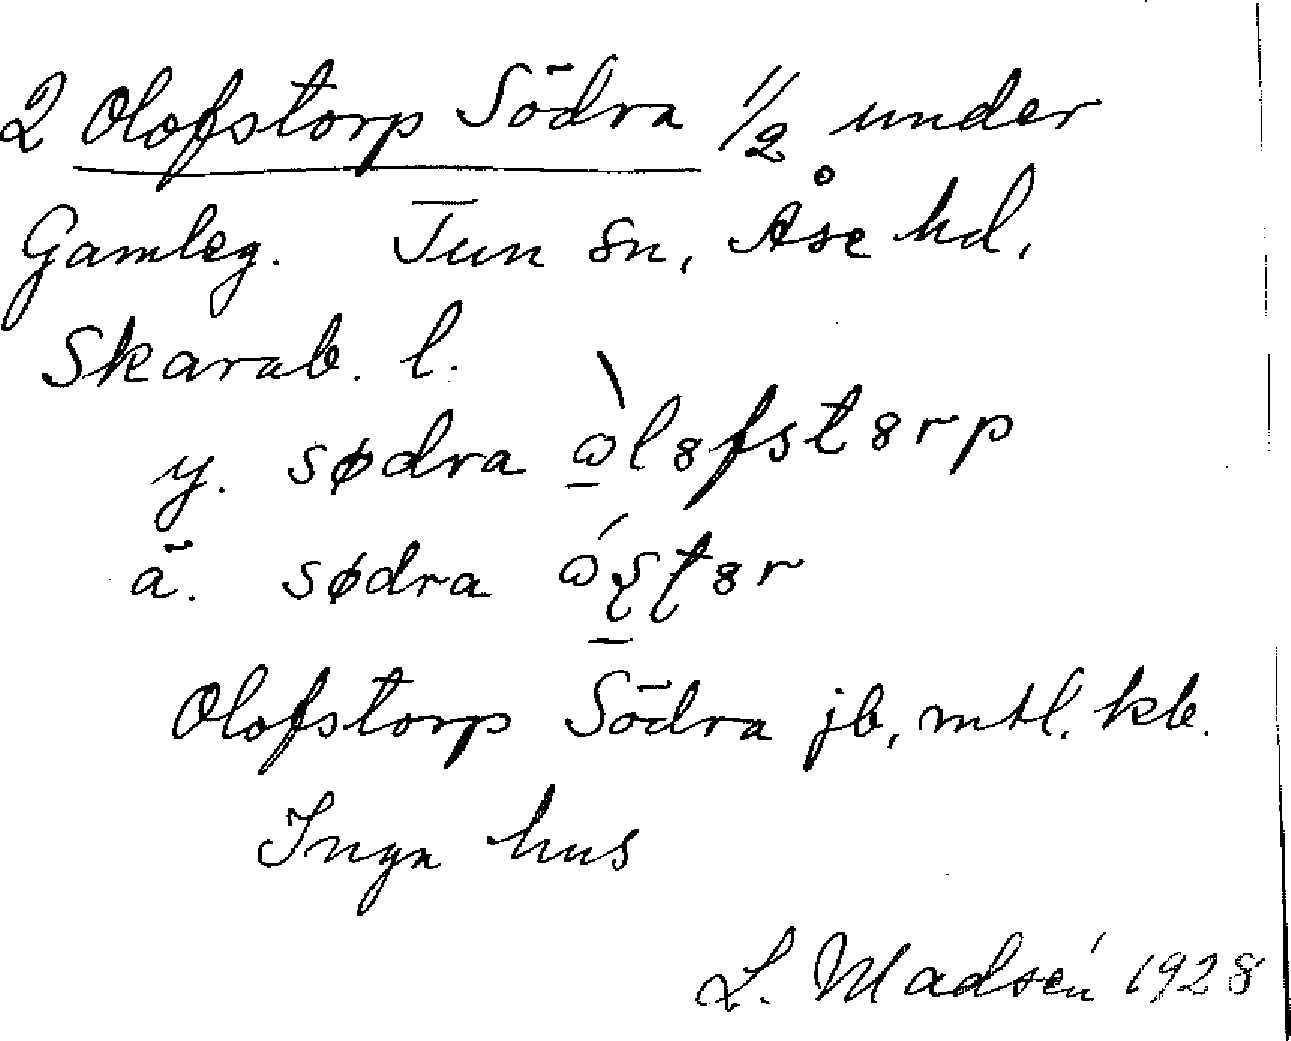 2 Olofstorp Södra 1/2 under
Gamleg. Tun sn, Åse hd,
Skarab. l.
y. södra òlofstorp
ä. södra
Olofstorp Södra jb, mtl. kb.
Inga hus
L. Madsén 1928